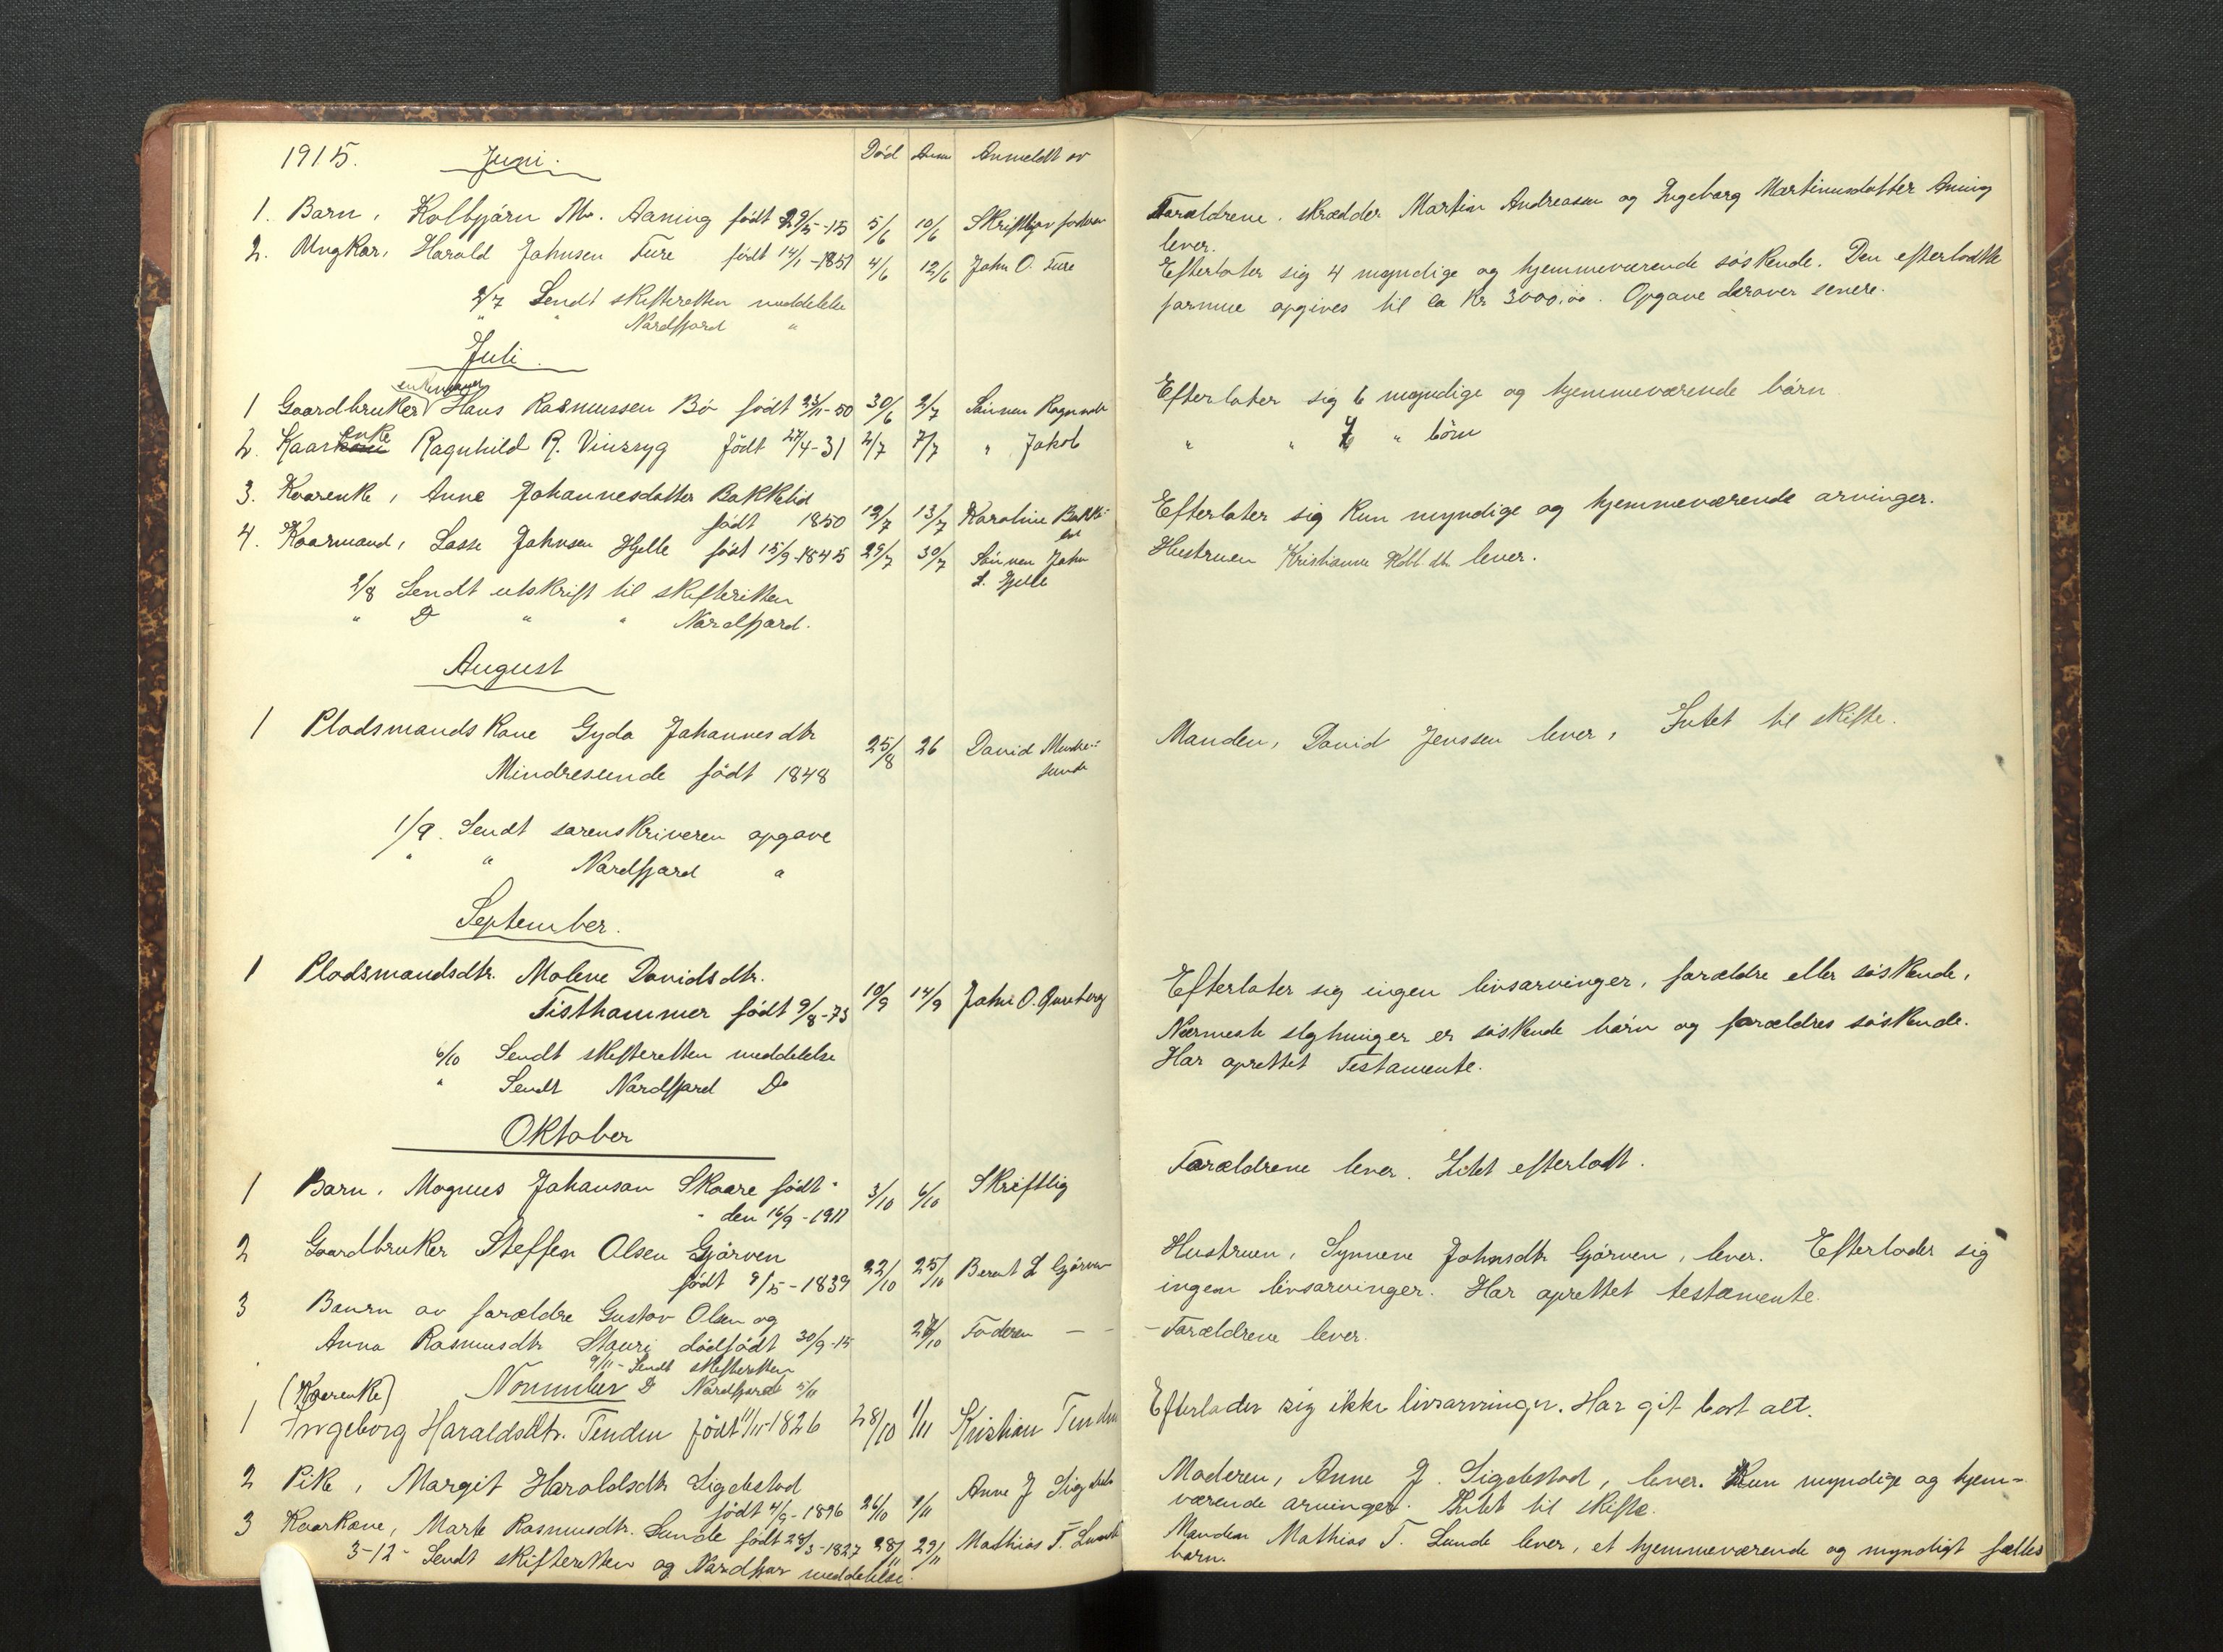 1915. Juni. Död Anm Anmeldt av
1. Barn, Kolbjörn M. Aaning födt 29/5-15 5/6 10/6 Skriftlig av faderen
Forældrene, skrædder Martin Andreassen og Ingeborg Martinusdatter Aning
lever.
2. Ungkar, Harald Johnsen Ture födt 14/1-1851 4/6 12/6 John O. Ture
Efterlater sig 4 myndige og hjemmeværende söskende. Den efterladte
formue opgives til ca Kr 3000,00. Opgave derover senere.
2/7 Sendt skifteretten meddelelse
" " Nordfjord "
Juli.
enkemand
1 Gaardbruker Hans Rasmussen Bö födt 23/11-50 30/6 2/7 Sönnen Ragnvald
Efterlater sig 6 myndige og hjemmeværende börn
enke
2. Kaarkone Ragnhild R. Vinsryg födt 27/4-31 2/7 7/7 " Jakob
" " 7 " börn
3. Kaarenke, Anne Johannesdatter Bakkelid
födt 1850 12/7 13/7 Karoline Bakke-
lid
Efterlater sig kun myndige og hjemmeværende arvinger.
4. Kaarmand, Lasse Johnsen Hjelle födt 15/9-1845 29/7 30/7 Sönnen John
L. Hjelle
Hustruen Kristianne lever.
2/8 Sendt utskrift til skifteretten
" D " " Nordfjord.
August
1 Pladsmandskone Gyda Johannesdtr
Mindresunde födt 1848
25/8 26 David Mindre-
sunde
Manden, David Jenssen lever, Intet til skifte.
1/9. Sendt sorenskriveren opgave
" " Nordfjord "
September.
1 Pladsmandsdtr. Malene Davidsdtr.
Tisthammer födt 9/8-73
10/9 14/9 John O.
Efterlater sig ingen livsarvinger, forældre eller söskende,
Nærmeste slegtninger er söskende börn og forældres söskende.
Har oprettet Testamente.
6/10 Sendt skifteretten meddelelse
" Sendt Nordfjord Do
Oktober
1 Barn, Magnus Johansen Skaare födt
den 16/9-1911
3/10 6/10 Skriftlig
Forældrene lever. Intet efterladt.
2 Gaardbruker Steffen Olsen Gjörven
födt 9/5-1839
22/10 25/10 Bernt L Gjörven
Hustruen, Synneve Johnsdtr Gjörven, lever. Efterlader sig
ingen livsarvinger. Har oprettet testamente.
3 Baurn av forældre Gustav Olsen og
Anna Rasmusdtr Stauri dödfödt 30/9-15
27/10 Faderen — -
- Forældrene lever.
9/11 - Sendt skifteretten
November D Nordfjord 5/11
(Kaarenke)
1 Ingeborg Haraldsdtr. Tenden födt 11/11-1826 28/10 1/11 Kristian Tenden
Efterlader sig ikke livsarvinger. Har git bort alt.
2 Pike, Margit Haraldsdtr Sigdestad
födt 4/9-1896
26/10 1/11 Anne J Sigdestad
Moderen, Anne J. Sigdestad, lever. Kun myndige og hjem-
værende arvinger. Intet til skifte.
3 Kaarkone, Marte Rasmusdtr. Sunde födt 28/3-1827 28/11 29/11 Mathias T. Sunde
Manden Mathias T. Sunde lever, et hjemmeværende og myndigt fælles
barn.
3-12- Sendt skifteretten og Nordfjor meddelelse.